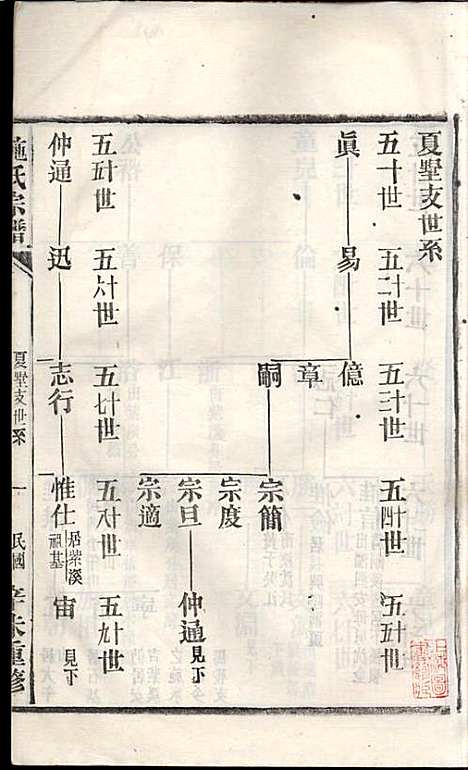 夏墅支世系
五十一世
五十二世
五十三世
五十四世
五十五世
眞一
易
億
章
嗣
宗簡
宗度
宗旦
宗適
仲通
見下
五十五世
五十六世
五十七世
五十八世
五十九世
仲通
迅
志行
惟仕
居紫溪
祖基
宙
見下
施氏宗譜
夏墅支世系
一
民國
辛未重修